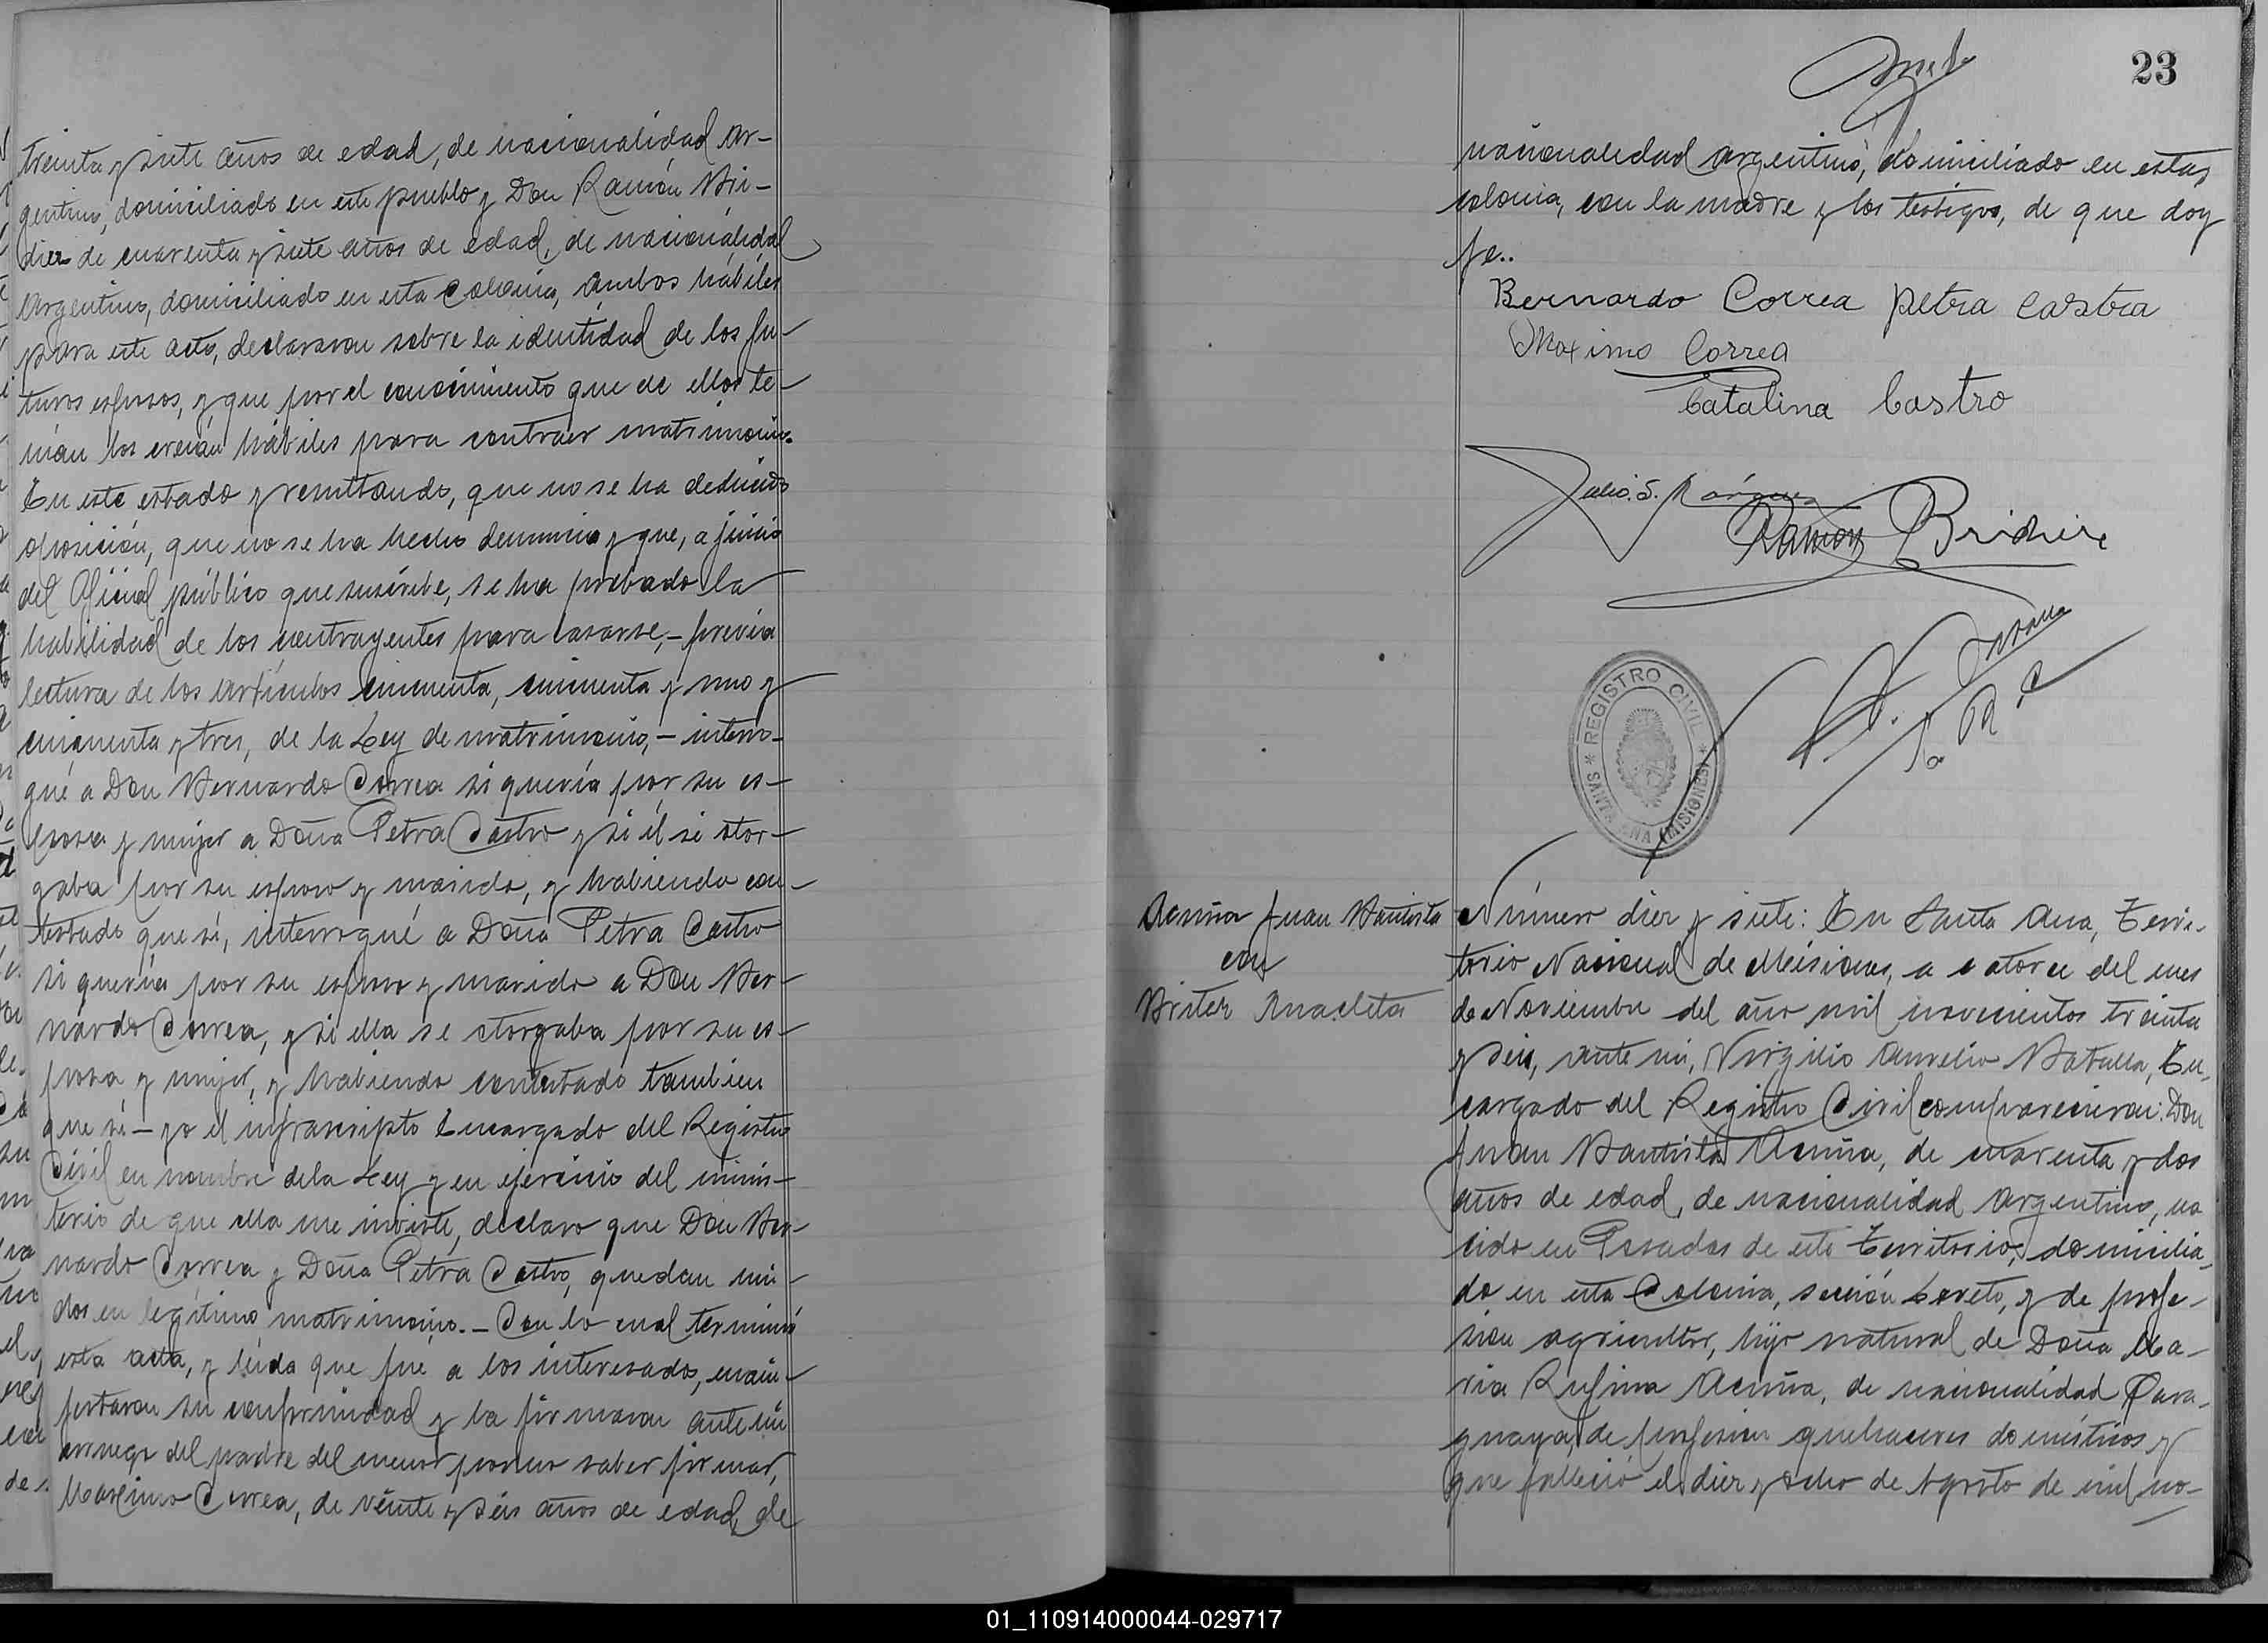 treinta y siete años de edad, de nacionalidad ar-
gentino, domiciliado en este pueblo y Don Ramón Bri-
dier de cuarenta y siete años de edad, de nacionalidad
Argentino, domiciliado en esta Colonia, ambos hábiles
para este acto, declararon sobre la identidad de los fu-
turos esposos, y que por el conocimiento que de ellos te-
nían los creían hábiles para contraer matrimonio.
En este estado y resultando, que no se ha deducido
oposición, que no se ha hecho denuncia y que, a juicio
del Oficial público que suscribe, se ha probado la
habilidad de los contrayentes para casarse, - previa
lectura de los artículos cincuenta, cincuenta y uno y
cincuenta y tres, de la Ley de matrimonio, - interro-
gué a Don Bernardo Correa si quería por su es-
posa y mujer a Doña Petra Castro y si él se otor-
gaba por su esposo y marido, y habiendo con-
testado que si, interrogué a Doña Petra Castro
si quería por su esposo y marido a Don Ber-
nardo Correa, y si ella se otorgaba por su es-
posa y mujer, y habiendo contestado tambien
que si - yo el infrascripto Encargado del Registro
Civil en nombre de la Ley y en ejercicio del minis-
terio de que ella me inviste, declaro que Don Ber-
nardo Correa y Doña Petra Castro, quedan uni-
dos en legítimo matrimonio. - Con lo cual terminó
esta acta, y leída que fué a los interesados, mani-
festaron su conformidad y la firmaron ante mi
a ruego del padre del menor por no saber firmar,
Maximo Correa, de veinte y seis años de edad, de
23
nacionalidad argentino, domiciliado en esta
colonia, con la madre y los testigos, de que doy
fe..
Bernardo Correa Petra Castra
Maximo Correa
Catalina Castro
Julio. S. Márquez
Ramon Bridier
REGISTRO CIVIL
SANTA ANA (MISIONES)
Acuña Juan Bautista
con
Briter Anacleta
Número diez y siete: En Santa Ana, Terri-
torio Nacional de Misiones, a catorce del mes
de Noviembre del año mil novecientos treinta
y seis, ante mi, Virgilio Aurelio Batalla, En-
cargado del Registro Civil comparecieron: Don
Juan Bautista Acuña, de cuarenta y dos
años de edad, de nacionalidad Argentino, na
cido en Posadas de este Territorio, domicilia-
do en esta Colonia, sección Loreto, y de profe-
sion agricultor, hijo natural de Doña Ma-
ria Rufina Acuña, de nacionalidad Para-
guaya, de profesion quehaceres domésticos y
que falleció el diez y ocho de Agosto de mil no-
01_110914000044-029717